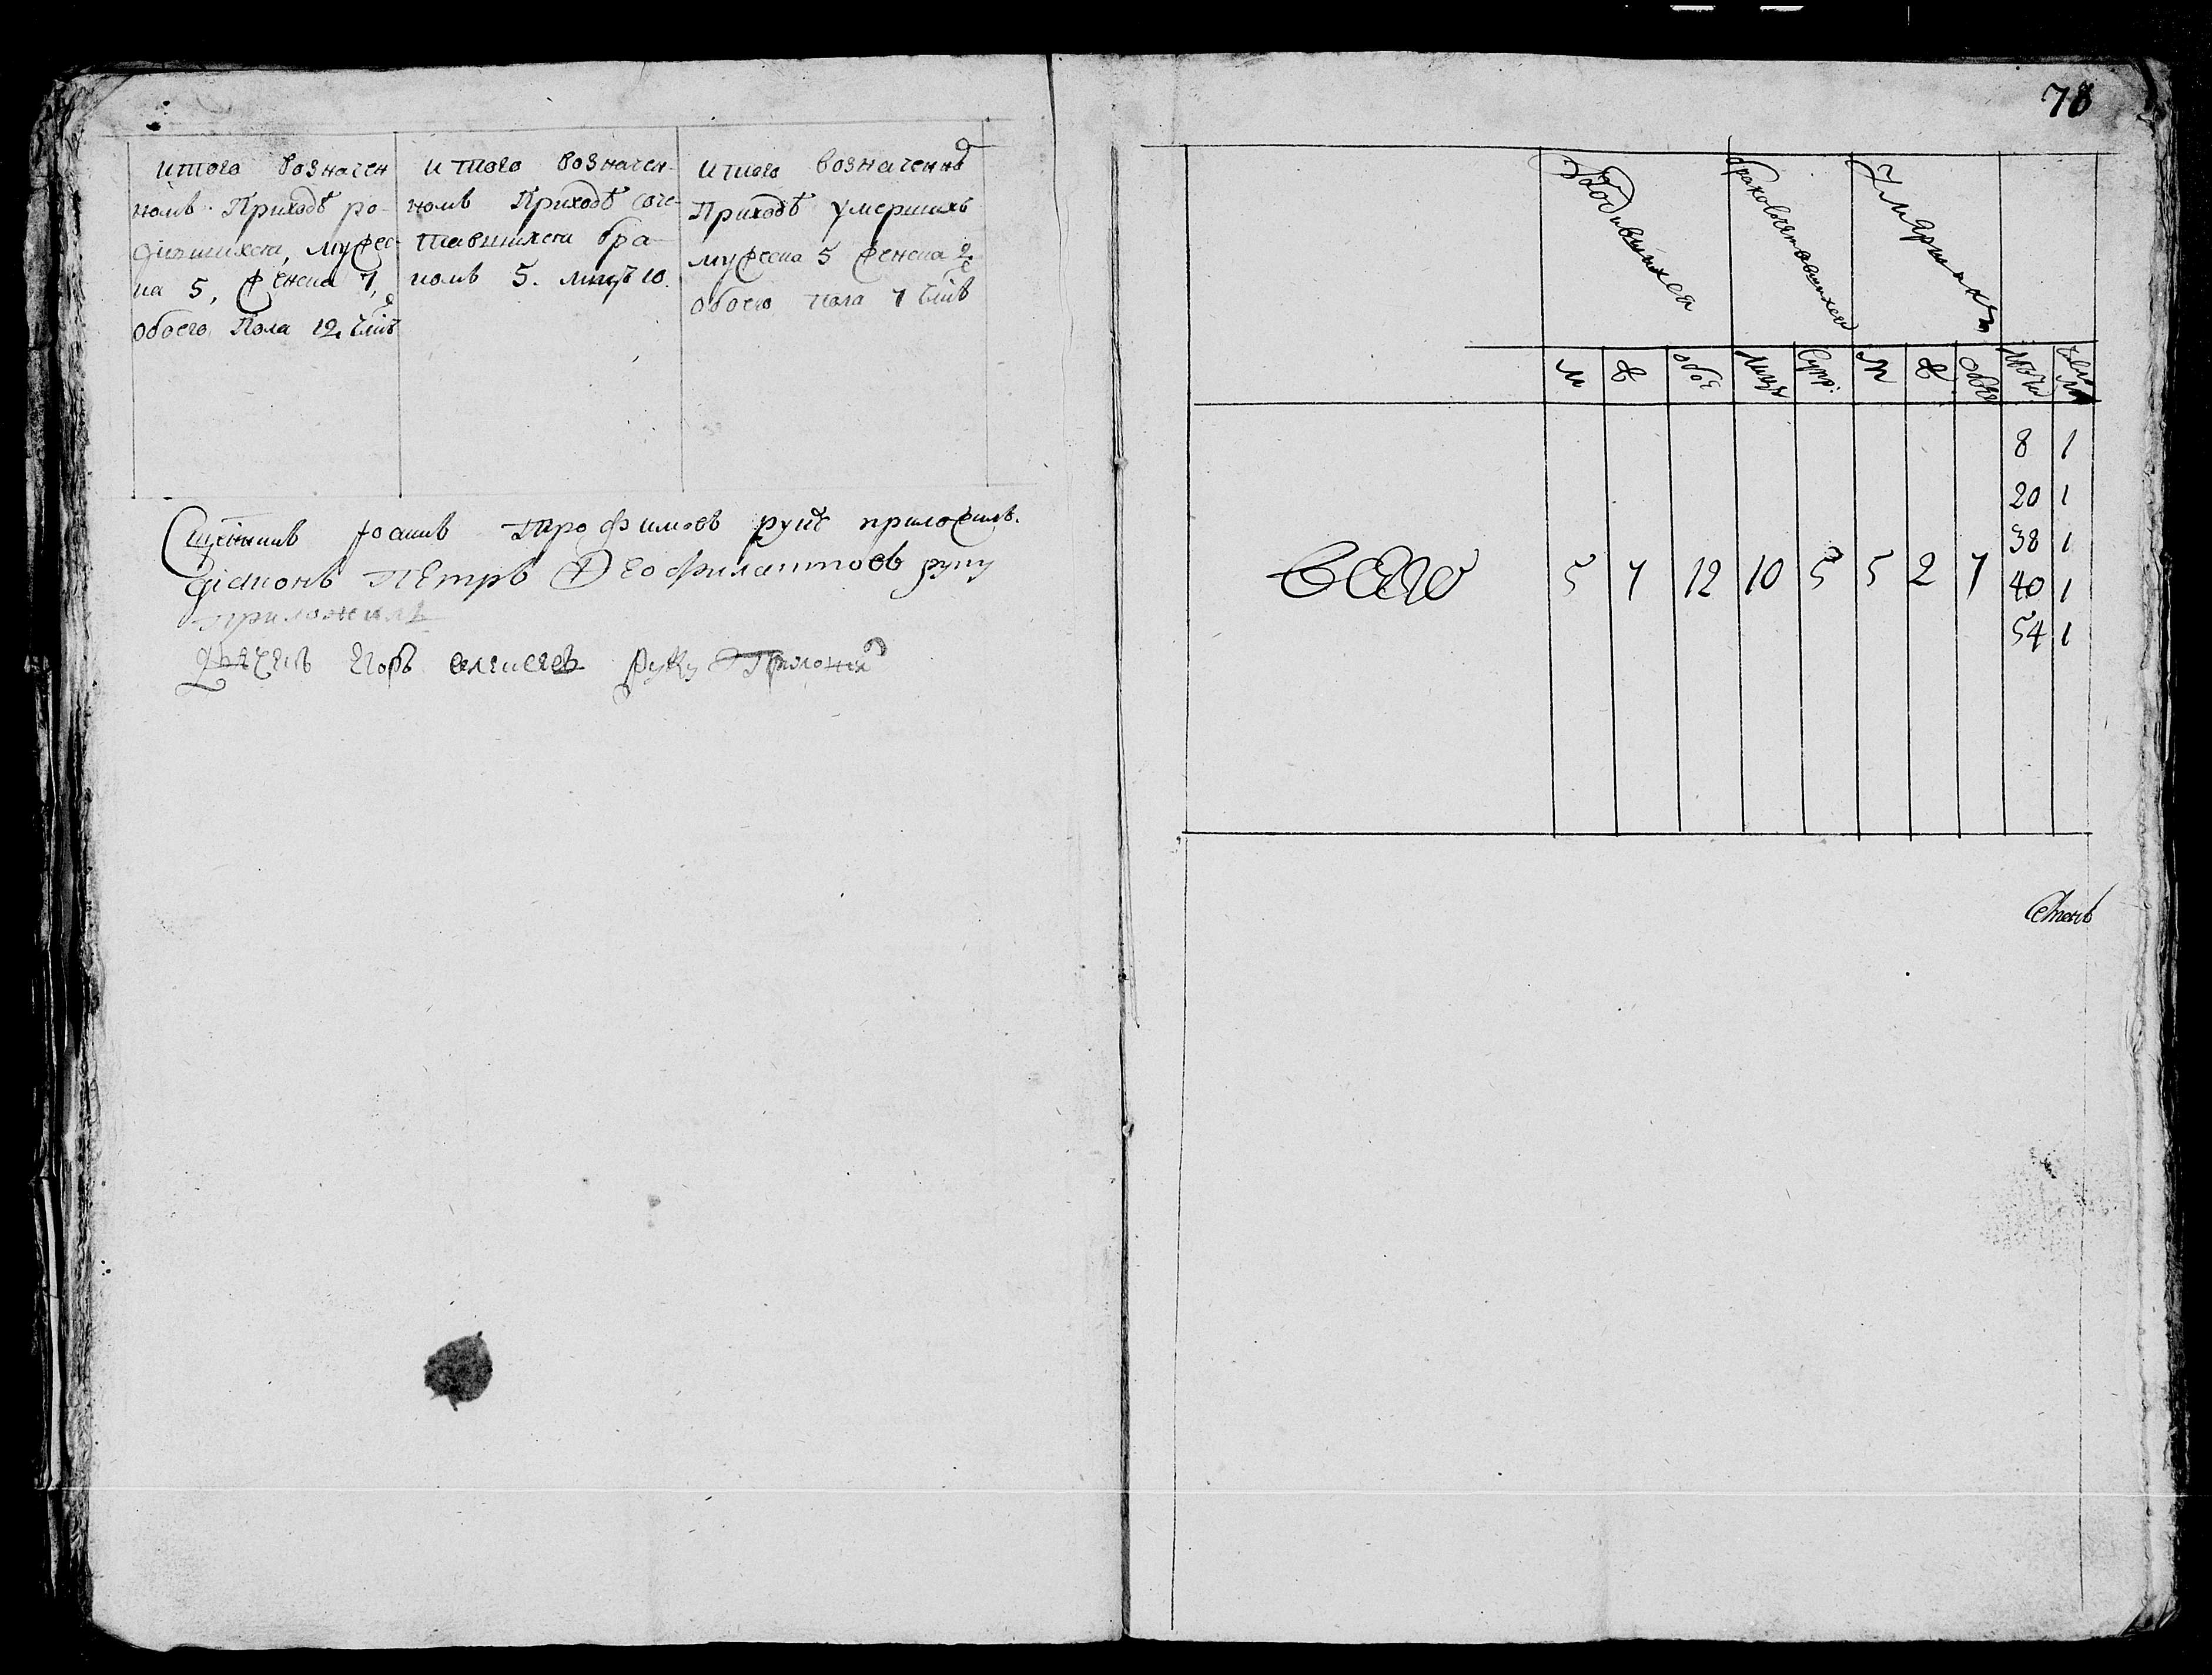 итого возначен
номъ Приходѣ ро
дившихся, мужес
ка 5, женска 7,
обоего Пола 12, члвкъ
итого возначен
номъ Приходѣ соче
тавшихся бра
комъ 5. лицъ 10.
итого возначеннѣ
Приходѣ умершихъ
мужеска 5 женска 2
обоего пола 7 члвкъ
Сщенникъ Іоаннъ Трофимовъ руку приложилъ.
діаконъ Петръ Феофилактовъ руку
приложилъ
Дьячекъ Егоръ Алексеевъ руку Приложил
78
Родившихся
браковъ
Умершихъ
м ж обое лицъ супр: м ж обое
Всего 5 7 12 10 5 5 2 7
8 1
20 1
38 1
40 1
54 1